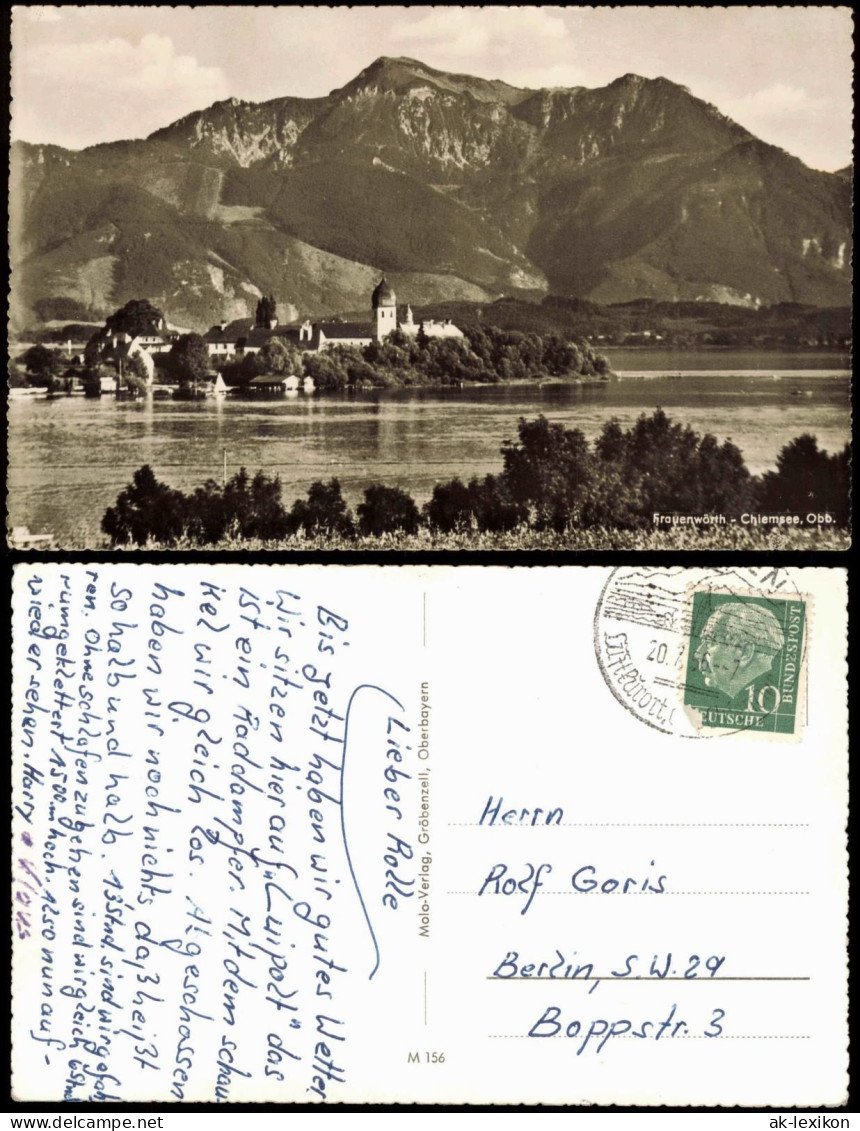 Frauenwörth - Chiemsee, Obb.
Lieber Rolle
Bis jetzt haben wir gutes Wetter
Wir sitzen hier auf "Luipolt" das
ist ein Raddampfer. Mit dem schau-
kel wir gleich los. Abgeschossen
haben wir noch nichts daß heißt
so halb und halb. 13 Stnd. sind wir gefah
ren. Ohne schlafen zu gehen sind wir gleich 6 Stnd
rumgeklettert 1500 m hoch. 1250 nun auf-
wiedersehen. Harry
Klaus
Molo-Verlag, Gröbenzell, Oberbayern
M 156
20.
Luftkurort
10
DEUTSCHE
BUNDESPOST
Herrn
Rolf Goris
Berlin, S.W. 29
Boppstr. 3
ak-lexikon